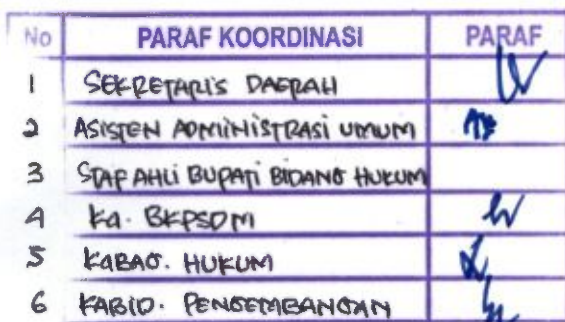 No PARAF KOORDINASI PARAF
1 SEKRETARIS DAERAH
2 ASISTEN ADMINISTRASI UMUM
3 STAF AHLI BUPATI BIDANG HUKUM
4 Ka. BKPSDM
5 KABAG. HUKUM
6 KABID. PENGEMBANGAN